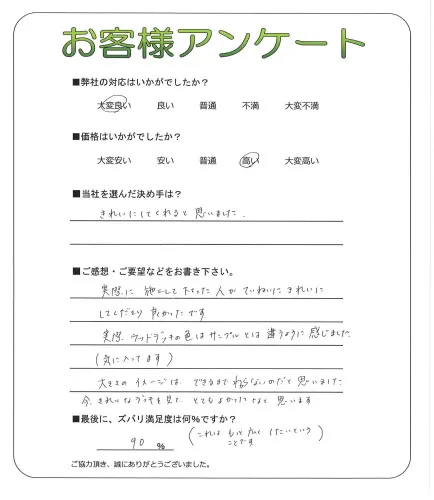 お客様アンケート
■弊社の対応はいかがでしたか？
大変良い 良い 普通 不満 大変不満
■価格はいかがでしたか？
大変安い 安い 普通 高い 大変高い
■当社を選んだ決め手は？
きれいにしてくれると思いました.
■ご感想・ご要望などをお書き下さい。
実際に 施工して下さった人が ていねいに きれいに
してくださり 良かったです
実際、ウッドデッキの色はサンプルとは違うように感じました
(気に入ってます)
大きさのイメージは できるまで わからないのだと思いました
今、きれいなデッキを見て とてもよかったなと思います
■最後に、ズバリ満足度は何%ですか？
90 %
(これは もっと広く したいという
ことです)
ご協力頂き、誠にありがとうございました。